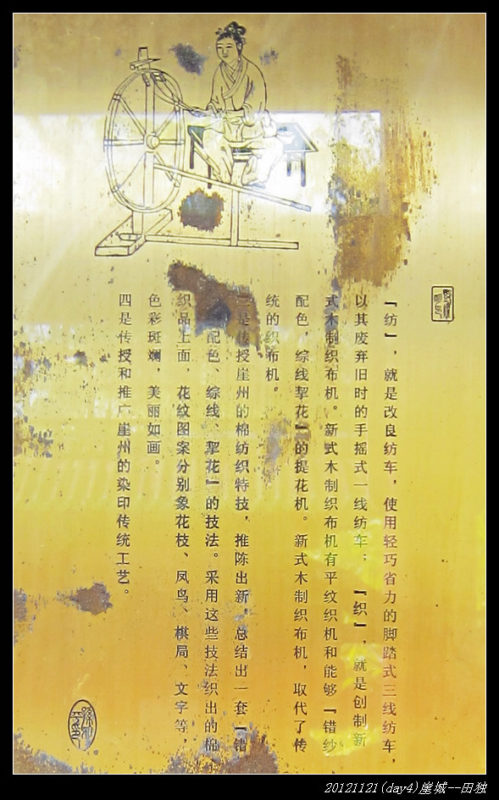 「纺」，就是改良纺车，使用轻巧省力的脚踏式三线纺车，
以其废弃旧时的手摇式一线纺车；「织」，就是创制新
式木制织布机。新式木制织布机有平纹织机和能够「错纱
配色，综线挈花」的提花机。新式木制织布机，取代了传
统的织布机。
三是传授崖州的棉纺织特技，推陈出新，总结出一套「错
配色、综线、挈花」的技法。采用这些技法织出的棉
织品上面，花纹图案分别象花枝、凤鸟、棋局、文字等，
色彩斑斓，美丽如画。
四是传授和推广崖州的染印传统工艺。
20121121(day4)崖城--田独